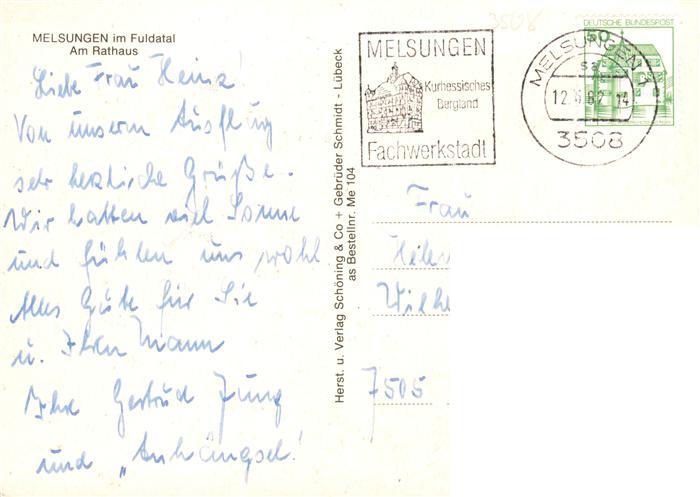 MELSUNGEN im Fuldatal
Am Rathaus
Liebe Frau Heinz!
Von unserm Ausflug
sehr herzliche Grüße.
Wir hatten viel Sonne
und fühlen uns wohl
Alles Gute für Sie
u. Ihren Mann
Ihre Gertrud Jung
und "Anhängsel!
Herst. u. Verlag Schöning & Co + Gebrüder Schmidt - Lübeck
as Bestellnr. Me 104
3508
MELSUNGEN
Kurhessisches
Bergland
Fachwerkstadt
MELSUNGEN 1
sa
12.6.82 14
3508
DEUTSCHE BUNDESPOST
50
Frau
7505